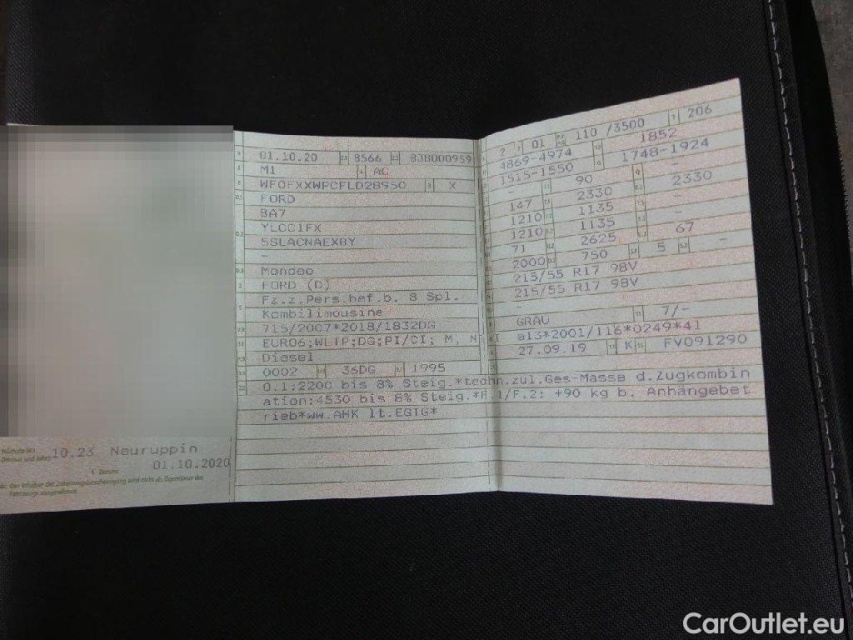 10.23 Neuruppin
01.10.2020
01.10.20 8566 838000959
M1 AC
WF0FXXWPCFLD28950 X
FORD
BA7
YLCC1FX
5SLACNAEXBY
-
Mondeo
FORD (D)
Fz.z.Pers.bef.b. 8 Spl.
Kombilimousine
715/2007*2018/1832DG
EURO6;WLTP;DG;PI/CI; M, N I
Diesel
0002 36DG 1995
O.1:2200 bis 8% Steig.*techn.zul.Ges-Masse d.Zugkombin
ation:4530 bis 8% Steig.*F.1/F.2: +90 kg b. Anhängebet
rieb*ww.AHK lt.EGTG*
2 01 110 /3500 206
4869-4974 1852
1515-1550 1748-1924
- 90 -
147 2330 2330
1210 1135 -
1210 1135 -
71 2625 67
2000 750 5 -
215/55 R17 98V
215/55 R17 98V
GRAU 7/-
e13*2001/116*0249*41
27.09.19 K FV091290
CarOutlet.eu